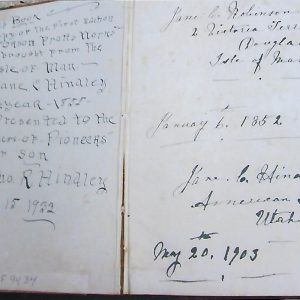 Book
of the First Edition
Pratts Works
brought from the
Isle of Man
Jane C Hindley
year - 1855
Presented to the
of Pioneers
Son
R Hindley
15 1922
Jane C. Robinson
2 Victoria Terr
Douglas
Isle of Man
January 6. 1852
Jane C. Hind
American
Utah
May 20.th 1903